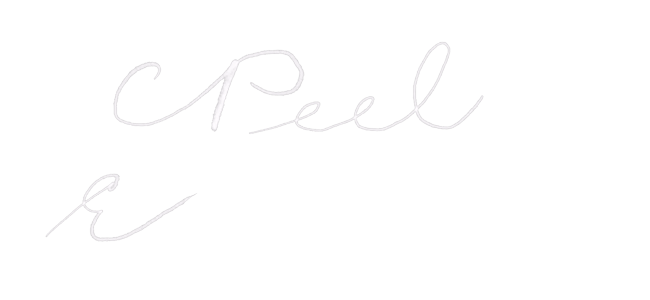 Peel
E